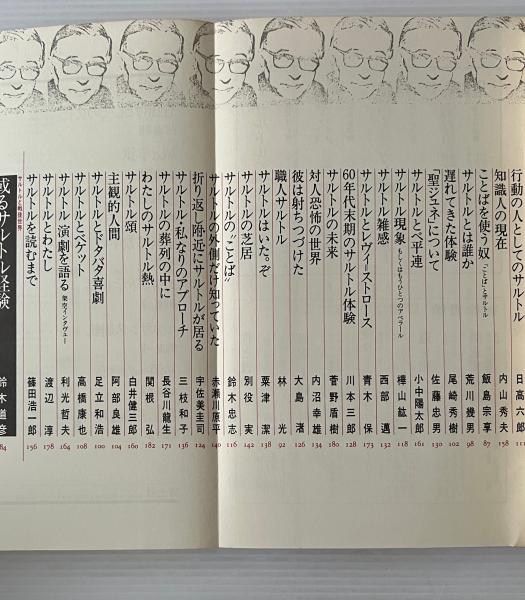 行動の人としてのサルトル 日高六郎 111
知識人の現在 内山秀夫 158
ことばを使う奴 「ことば」とサルトル 飯島宗享 87
サルトルとは誰か 荒川幾男 98
遅れてきた体験 尾崎秀樹 102
「聖ジュネ」について 佐藤忠男 130
サルトルとベ平連 小中陽太郎 161
サルトル現象 もしくはもうひとつのアベラール 樺山紘一 118
サルトル雑感 西部 邁 132
サルトルとレヴィ=ストロース 青木 保 173
60年代末期のサルトル体験 川本三郎 128
サルトルの未来 菅野盾樹 180
対人恐怖の世界 内沼幸雄 134
彼は射ちつづけた 大島 渚 126
職人サルトル 林 光 92
サルトルはいた。ぞ 粟津 潔 138
サルトルの芝居 別役 実 142
サルトルの〝ことば〟 鈴木忠志 116
サルトルの外側だけ知っていた 赤瀬川原平 140
折り返し附近にサルトルが居る 宇佐美圭司 124
サルトル・私なりのアプローチ 三枝和子 136
サルトルの葬列の中に 長谷川龍生 171
わたしのサルトル熱 関根 弘 182
サルトル頌 白井健三郎 160
主観的人間 阿部良雄 104
サルトルとドタバタ喜劇 足立和浩 100
サルトルとベケット 高橋康也 108
サルトル 演劇を語る 架空インタヴュー 利光哲夫 164
サルトルとわたし 渡辺 淳 178
サルトルを読むまで 篠田浩一郎 156
サルトルと戦後世界
或るサルトル経験 鈴木道彦 84